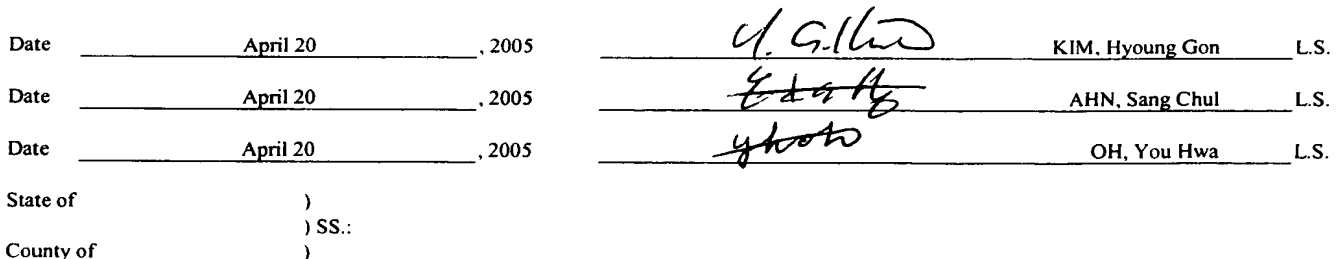 Date April 20 , 2005 KIM, Hyoung Gon L.S.
Date April 20 , 2005 AHN, Sang Chul L.S.
Date April 20 , 2005 OH, You Hwa L.S.
State of )
) SS.:
County of )